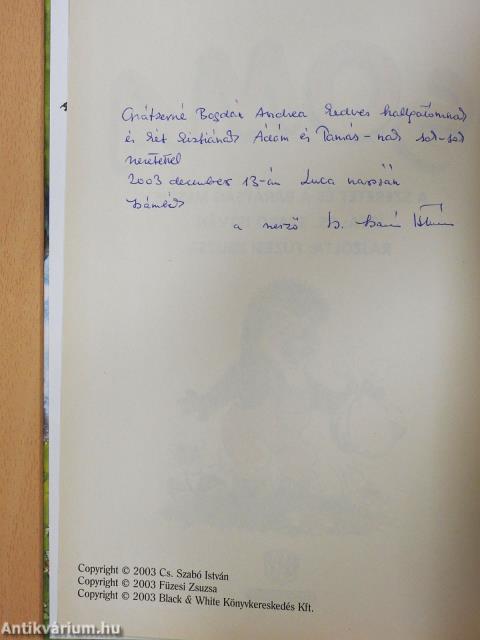 Bogdán Andrea kedves hallgatómnak
és két kisfiának Ádám és Tamás-nak sok-sok
szeretettel
2003 december 13-án Luca napján
a szerző Cs. Szabó István
Copyright © 2003 Cs. Szabó István
Copyright © 2003 Füzesi Zsuzsa
Copyright © 2003 Black & White Könyvkereskedés Kft.
Antikvárium.hu